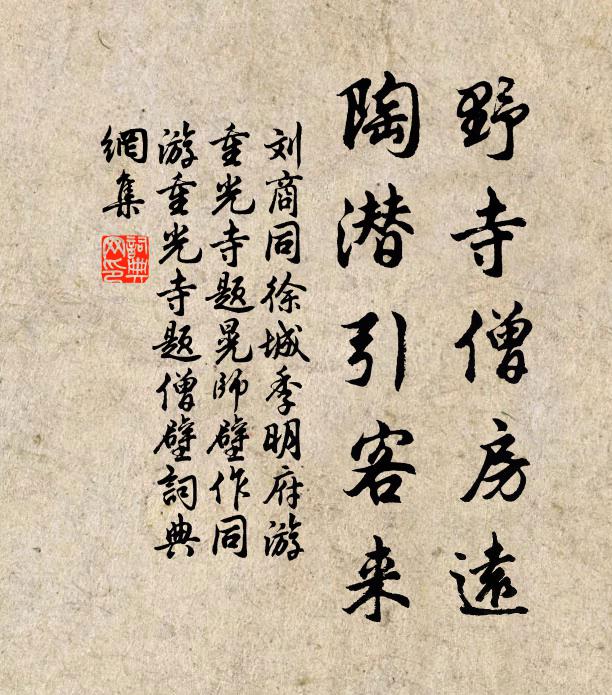 野寺僧房遠
陶潜引客来
刘商同徐城季明府游
重光寺题晃师壁作同
游重光寺题僧壁詞典
網集
詞典
网印